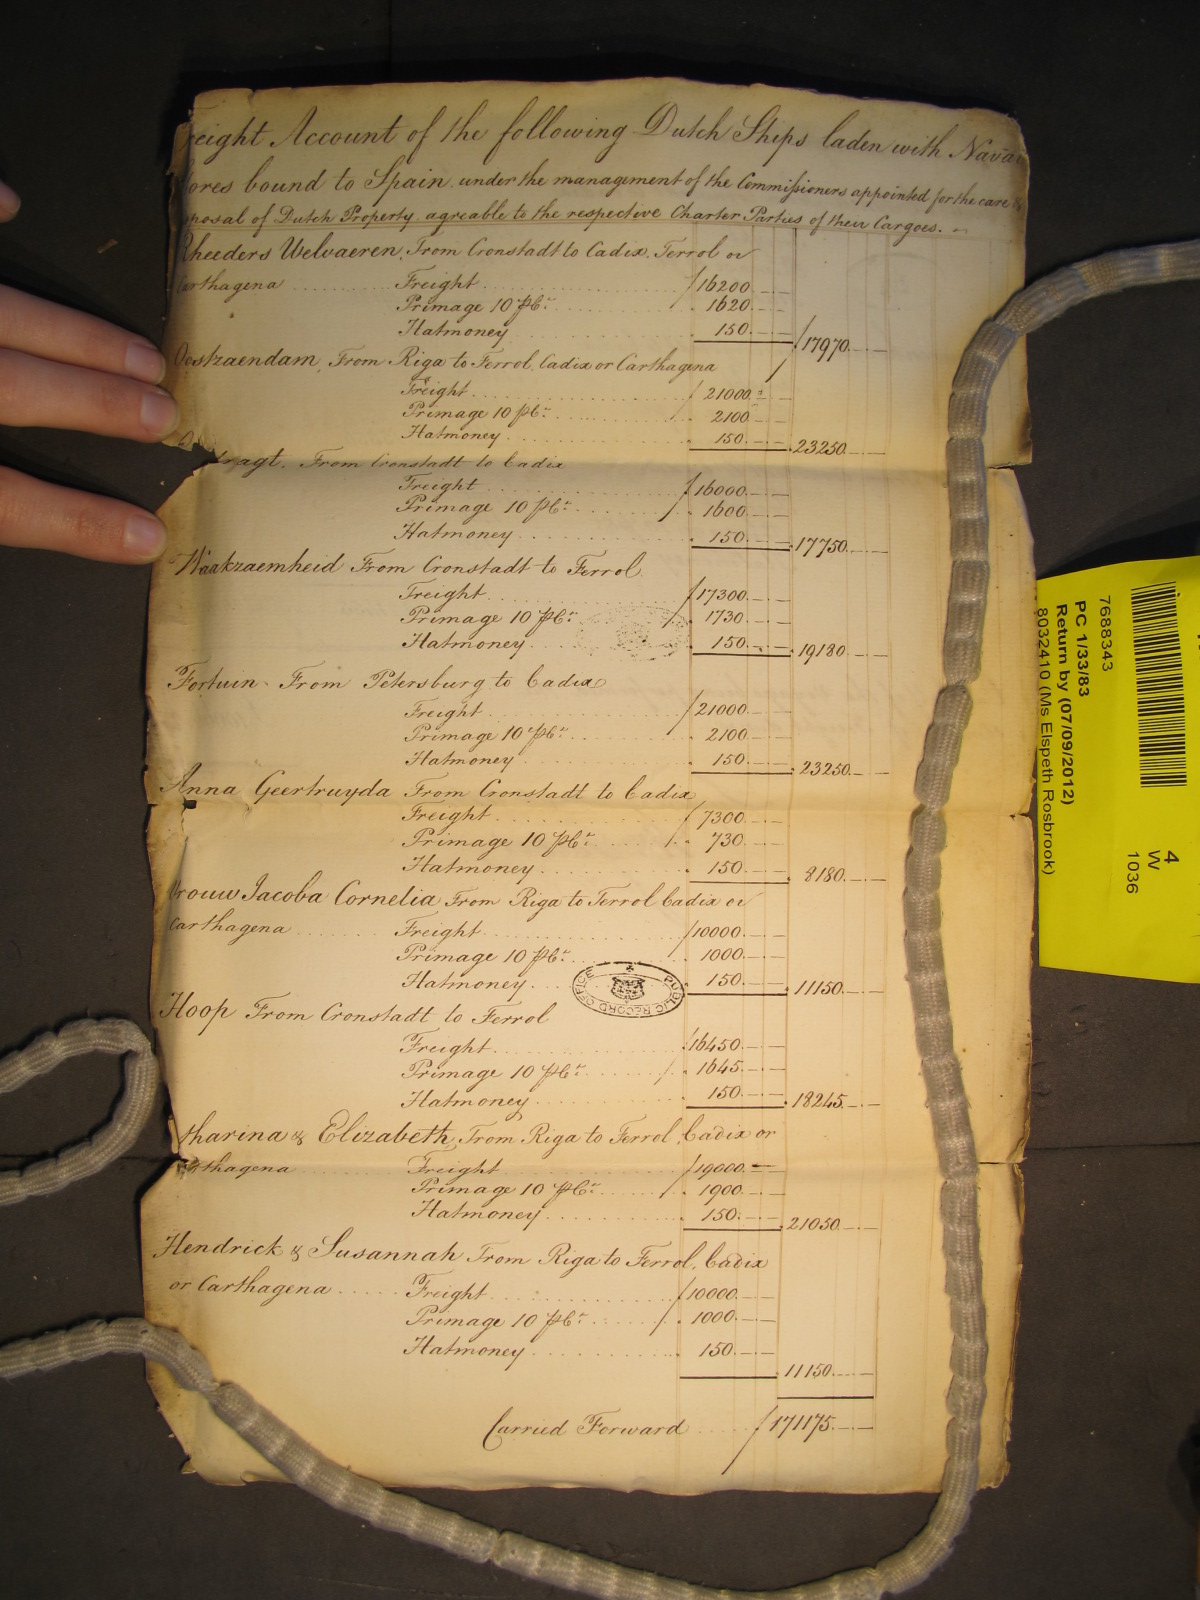 reight Account of the following Dutch Ships laden with Nava
ores bound to Spain under the management of the Commissioners appointed for the care &
posal of Dutch Property agreable to the respective Charter Parties of their Cargoes.
Rheeders Welvaeren, From Cronstadt to Cadix, Ferrol or
arthagena Freight ƒ 16200
Primage 10 pCt. 1620
Hatmoney 150 ƒ 17970
Oostzaendam, From Riga to Ferrol, Cadix or Carthagena
Freight ƒ 21000
Primage 10 pCt. 2100
Hatmoney 150 23250
dragt, From Cronstadt to Cadix
Freight ƒ 16000
Primage 10 pCt. 1600
Hatmoney 150 17750
Waakzaemheid From Cronstadt to Ferrol
Freight ƒ 17300
Primage 10 pCt. 1730
Hatmoney 150 19180
Fortuin From Petersburg to Cadix
Freight ƒ 21000
Primage 10 pCt. 2100
Hatmoney 150 23250
Anna Geertruyda From Cronstadt to Cadix
Freight ƒ 7300
Primage 10 pCt. 730
Hatmoney 150 8180
Vrouw Jacoba Cornelia From Riga to Ferrol Cadix or
Carthagena Freight ƒ 10000
Primage 10 pCt. 1000
Hatmoney 150 11150
PUBLIC RECORD OFFICE
Hoop From Cronstadt to Ferrol
Freight ƒ 16450
Primage 10 pCt. 1645
Hatmoney 150 18245
tharina & Elizabeth, From Riga to Ferrol, Cadix or
arthagena Freight ƒ 19000
Primage 10 pCt. 1900
Hatmoney 150 21050
Hendrick & Susannah From Riga to Ferrol, Cadix
or Carthagena Freight ƒ 10000
Primage 10 pCt. 1000
Hatmoney 150
11150
Carried Forward ƒ 171175
4
W
1036
7688343
PC 1/33/83
Return by (07/09/2012)
8032410 (Ms Elspeth Rosbrook)